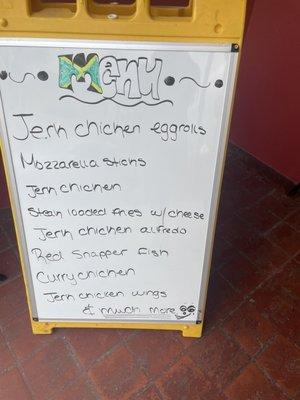 Menu
Jerk chicken eggrolls
Mozzarella sticks
Jerk chicken
Steak loaded fries w/cheese
Jerk chicken alfredo
Red Snapper Fish
Curry chicken
Jerk chicken wings
& much more